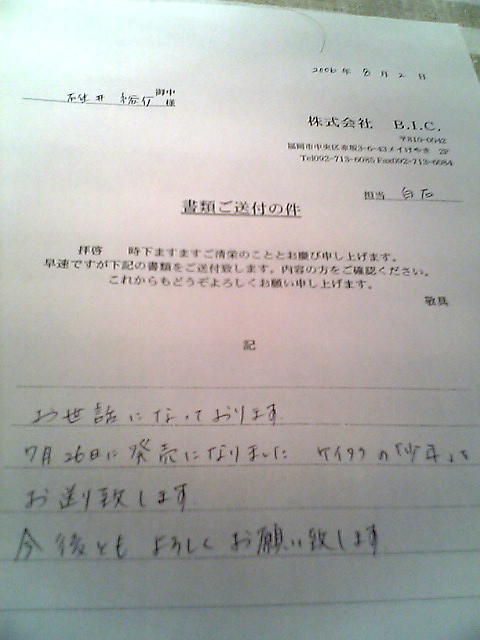 2006 年 8 月 2 日
御中
様
株式会社 B.I.C.
〒810-0042
福岡市中央区赤坂3-6-43メイけやき 2F
Tel092-713-6085 Fax092-713-6084
担当 白石
書類ご送付の件
拝啓 時下ますますご清栄のこととお慶び申し上げます。
早速ですが下記の書類をご送付致します。内容の方をご確認ください。
これからもどうぞよろしくお願い申し上げます。
敬具
記
お世話になっております
7月26日に発売になりました ケイタクの「少年」を
お送り致します
今後とも よろしくお願い致します